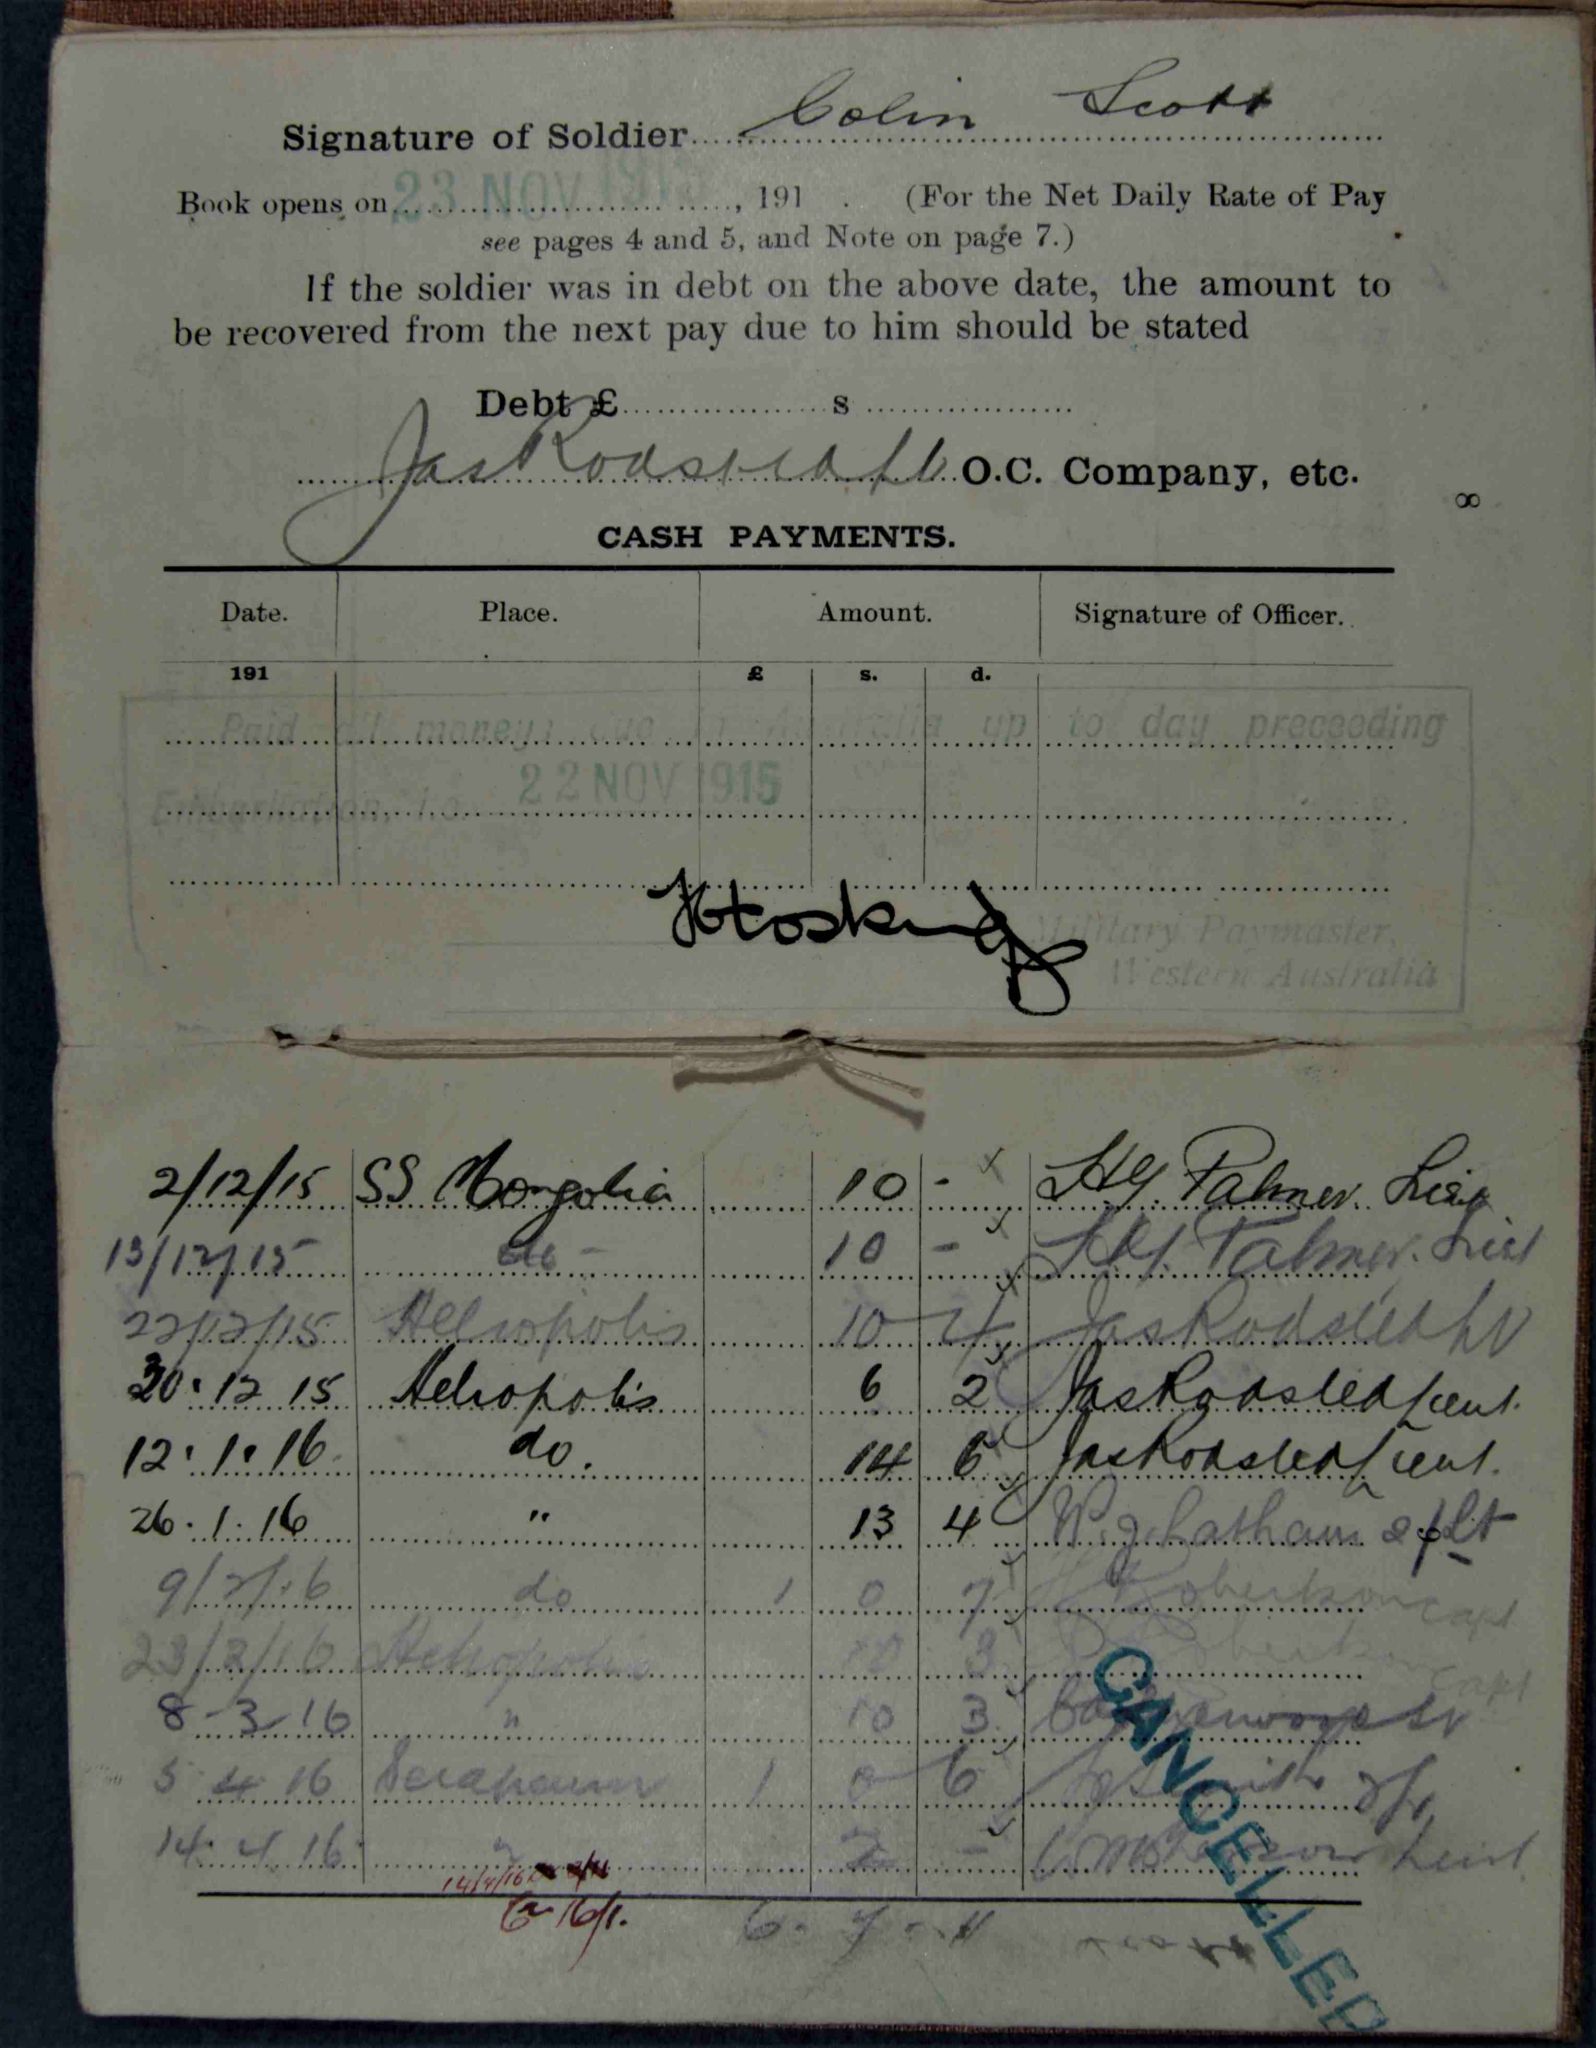 Signature of Soldier Colin Scott
Book opens on 23 NOV 1915, 191 . (For the Net Daily Rate of Pay
see pages 4 and 5, and Note on page 7.)
If the soldier was in debt on the above date, the amount to
be recovered from the next pay due to him should be stated
Debt £ s
O.C. Company, etc.
8
CASH PAYMENTS.
Date. Place. Amount. Signature of Officer.
191 £ s. d.
Paid all moneys due in Australia up to day preceeding
Embarkation, i.e. 22 NOV 1915
Military Paymaster,
Western Australia
2/12/15 SS Mongolia 10 - Palmer Lieut
13/12/15 do - 10 - Palmer. Lieut
22/12/15 Heliopolis 10 4
30.12 15 Heliopolis 6 2 Lieut.
12.1.16 do. 14 6 Lieut.
26.1.16 " 13 4 Latham 2/Lt
9/2/16 do 1 0 7 Robertson Capt
23/2/16 Heliopolis 10 3 Robertson Capt
8 3 16 " 10 3 Lt
5 4 16 Serapeum 1 0 6
14.4.16 " 2 - Lieut
14/4/16
6. 7. 11
CANCELLED